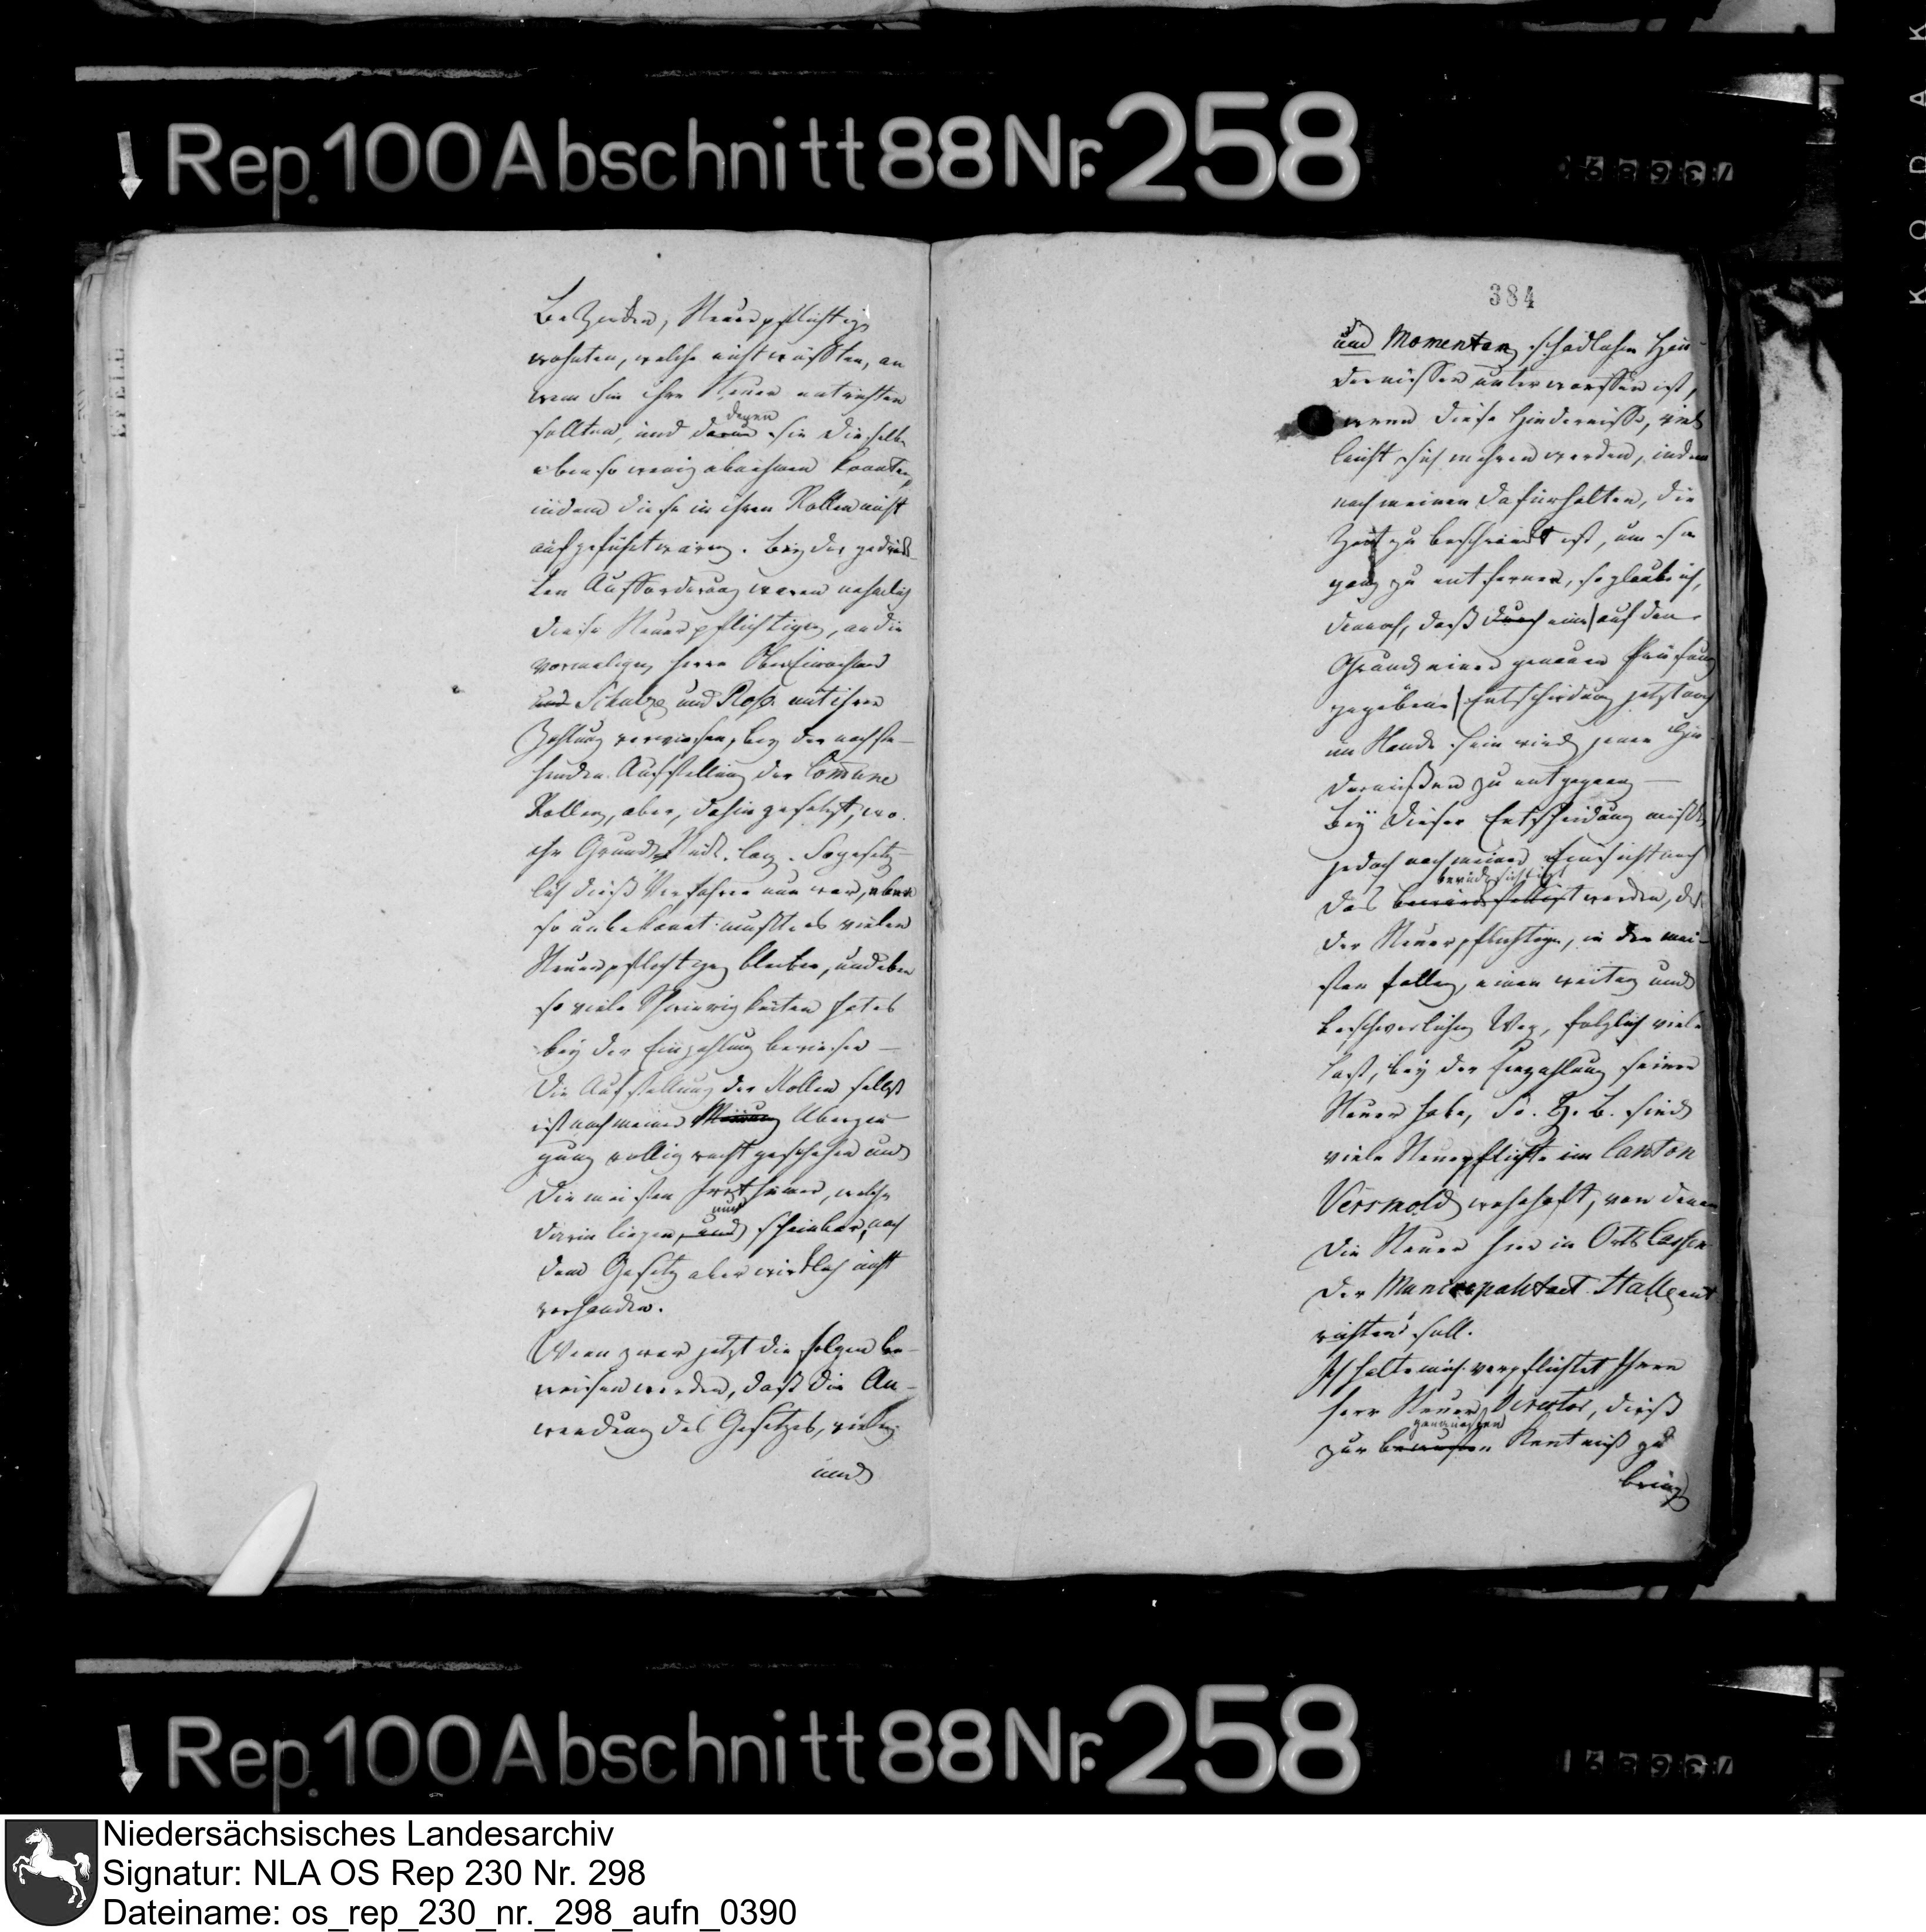 Rep. 100 Abschnitt 88 Nr. 258
Bezirken, Steuerpflichtige
wohnten, welche nicht wüsten, an
wem sie ihre Steuer entrichten
sollten, und denen sie dieselbe
eben so wenig abnehmen konnten,
indem diese in ihren Rollen nicht
aufgeführt waren. Bey der gedruck-
ten Aufforderung waren nehmlich
diese Steuerpflichtigen, an die
vormaligen Herrn
und Schulze und Rose mit ihrer
Zahlung verwiesen, bey der nachste-
henden Aufstellung der Comune
Rollen, aber, dahin gesetzt, wo
ihr Grundstück lag. So gesetz-
lich dieß Verfahren nun war, eben
so unbekannt mußte es vielen
Steuerpflichtigen bleiben, und eben
so viele Schwierigkeiten hat es
bey der Einzahlung bewiesen —
Die Aufstellung der Rollen selbst
ist nach meiner Meinung Uberzeu-
gung vollig recht geschehen und
die meisten Irrthümer, welche
darin liegen, und nur scheinbar, nach
dem Gesetz aber wirklich nicht
vorhanden.
Wenn zwar jetzt die Folgen be-
weisen werden, daß die An-
wendung des Gesetzes, vielen
und
384
und Momentan schädlichen Hin-
dernissen unterworffen ist,
wenn diese Hindernisse, viel
leicht sich mehren werden, indem
nach meinem dafürhalten, die
Zeit zu beschränkt ist, um sie
ganz zu entfernen, so glaube ich,
dennoch, daß durch eine auf den
Grund einer genauen Prüfung
gegebene Entscheidung jetzt noch
im Stande sein wird jenen Hin-
dernißen zu entgegnen —
Bey dieser Entscheidung müßte
jedoch nach meiner Einsicht auch
das berücksichtigt werden, daß
der Steuerpflichtige, in den mei-
sten Fallen, einen weiten und
beschwerlichen Weg, folglich viele
Last, bey der Einzahlung seiner
Steuer habe, So. Z. B. sind
viele Steuerpflichte im Canton
Versmold wohnhaft, von denen
die Steuer hier in Orts Casse
der Municipalitaet Halle ent
richten soll.
Ich halte mich verpflichtet Ihnen
Herr Steuer Director, dieß
zur geneigten Kentniß zu
bring
Rep. 100 Abschnitt 88 Nr. 258
KODAK
Niedersächsisches Landesarchiv
Signatur: NLA OS Rep 230 Nr. 298
Dateiname: os_rep_230_nr._298_aufn_0390